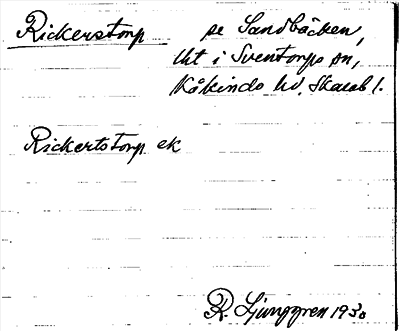 Rickerstorp se Sandbäcken,
lht i Sventorps sn,
Kåkinds hd, Skarab l.
Rickertstorp ek
R. Ljunggren 1930